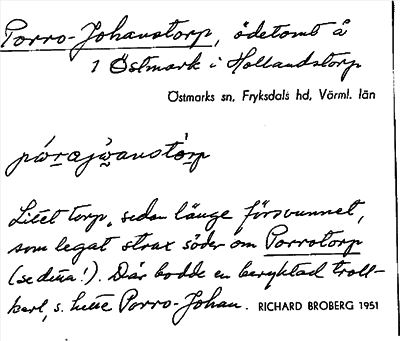 Porro-Johanstorp, ödetomt å
1 Östmark i Hollandstorp
Östmarks sn, Fryksdals hd, Värml. län
Litet torp, sedan länge försvunnet,
som legat strax söder om Porrotorp
(se detta!). Där bodde en beryktad troll-
karl, s. hette Porro-Johan. RICHARD BROBERG 1951